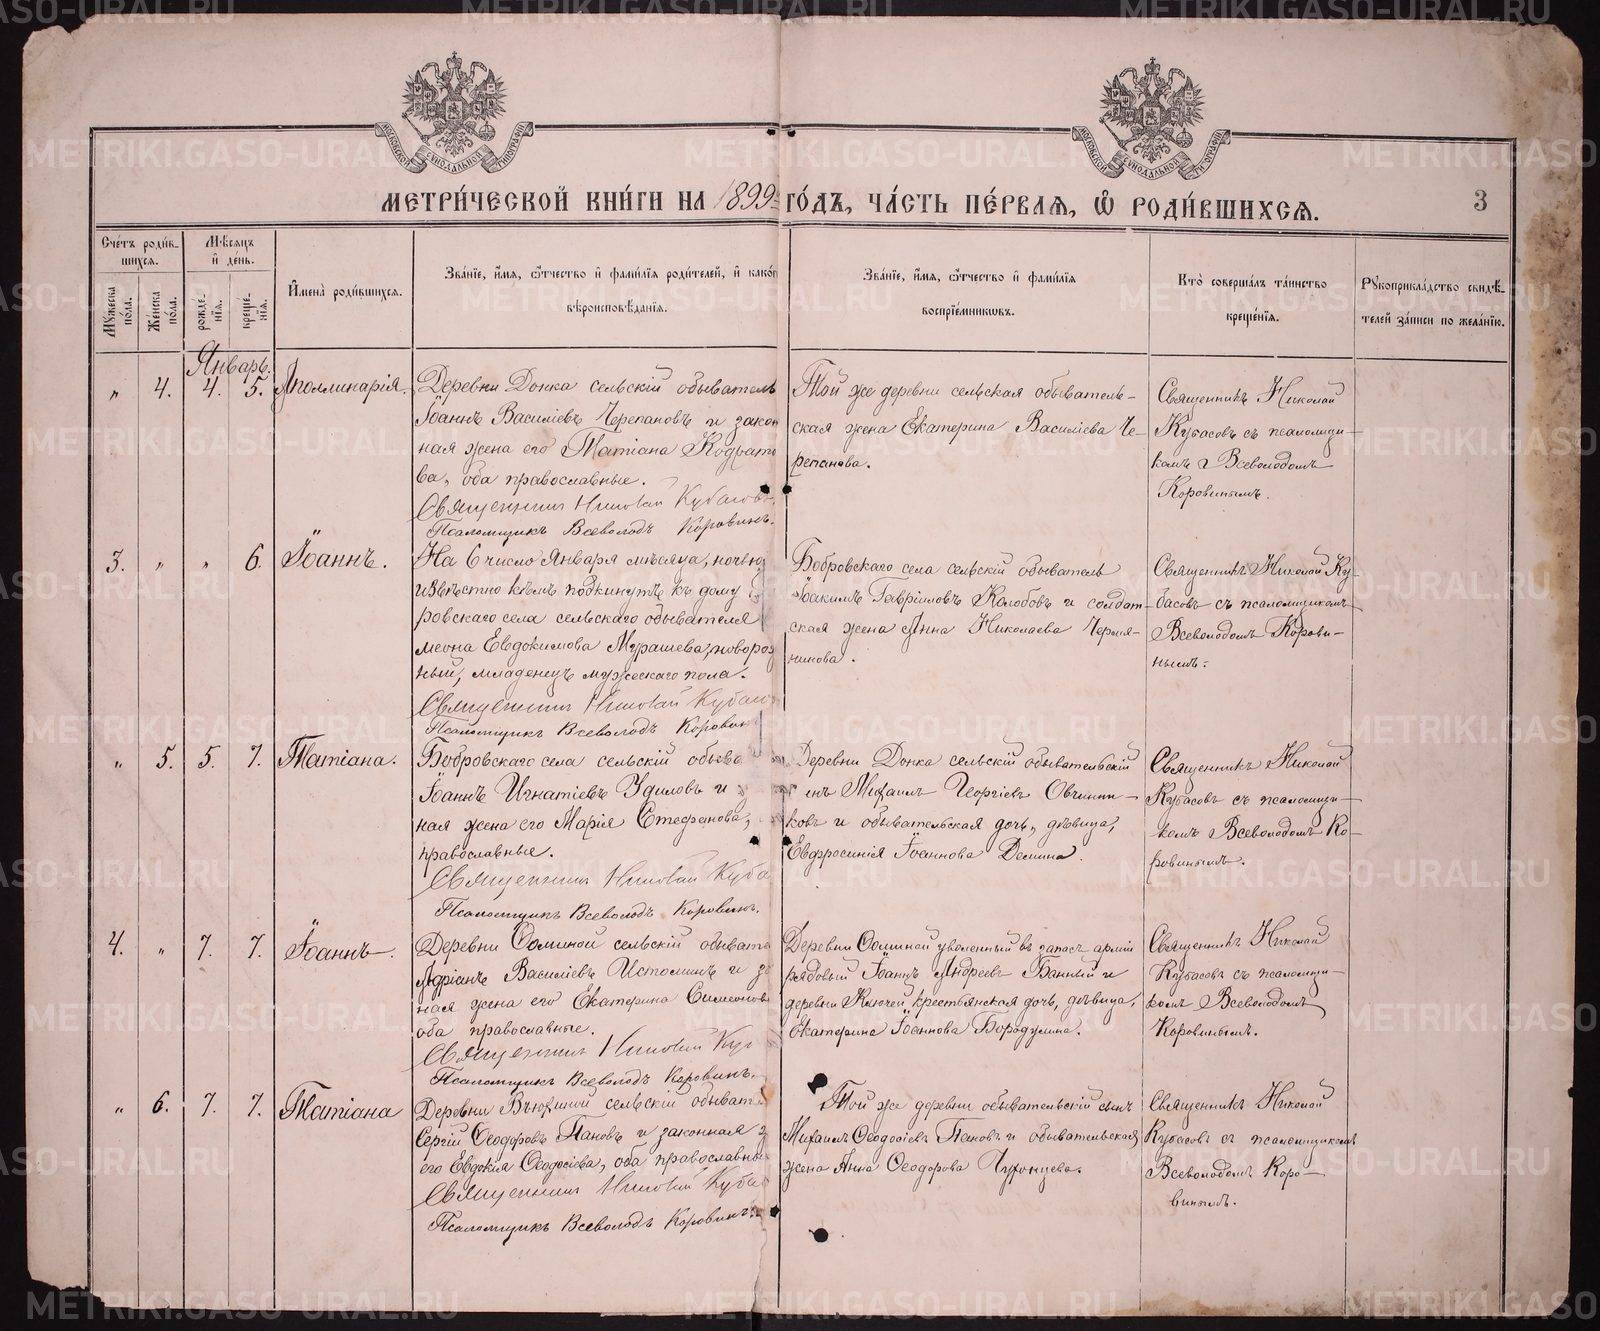 МЕТРИ́ЧЕСКОЙ КНИ́ГИ НА 1899 ГО́ДЪ, ЧА́СТЬ ПЕ́РВАЯ, Ѡ҆ РОДИ́ВШИХСЯ.
3
Сче́тъ роди́вшихся.
Мѣ́сяцъ и҆ де́нь.
Мꙋ́жеска по́ла.
Же́нска по́ла.
рожде́нїя.
креще́нїя.
И҆мена̀ роди́вшихся.
Зва́нїе, и҆́мя, ѻ҆́тчество и҆ фами́лїя роди́телей, и҆ како́г
вѣроисповѣ́данїя.
Зва́нїе, и҆́мя, ѻ҆́тчество и҆ фами́лїя
воспрїе́мникѡвъ.
Кто̀ соверша́лъ та́инство
креще́нїя.
Рꙋкоприкла́дство свидѣ́-
телей за́писи по жела́нїю.
Январь.
" 4. 4. 5. Аполлинарія.
Деревни Донка сельскій обыватель
Іоаннъ Василіевъ Черепановъ и закон
ная жена его Татіана Кодрато
ва, оба православные.
Священникъ Николай Кубасовъ
Псаломщикъ Всеволодъ Коровинъ.
Той же деревни сельская обыватель-
ская жена Екатерина Василіева Че-
репанова.
Священникъ Николай
Кубасовъ съ псаломщи-
комъ Всеволодомъ
Коровинымъ.
3. " " 6. Іоаннъ.
На 6 число Января мѣсяца, ночью
извѣстно кѣмъ подкинутъ къ дому
ровскаго села сельскаго обывателя
меона Евдокимова Мурашева, новорож
ный, младенецъ мужескаго пола.
Священникъ Николай Кубасо
Псаломщикъ Всеволодъ Коровин
Бобровскаго села сельскій обыватель
Іоакимъ Гавріиловъ Колобовъ и солдат-
ская жена Анна Николаева Черля-
нинова.
Священникъ Николай Ку-
басовъ съ псаломщикомъ
Всеволодомъ Корови-
нымъ.
" 5. 5. 7. Татіана.
Бобровскаго села сельскій обыва
Іоаннъ Игнатіевъ Удиловъ и з
ная жена его Марія Стефанова,
православные.
Священникъ Николай Куба
Псаломщикъ Всеволодъ Коровинъ.
Деревни Донка сельскій обывательскій
инъ Михаилъ Георгіевъ Овчинни-
ковъ и обывательская дочь, дѣвица,
Евфросинія Іоаннова Демина.
Священникъ Николай
Кубасовъ съ псаломщи-
комъ Всеволодомъ Ко-
ровинымъ.
4. " 7. 7. Іоаннъ.
Деревни Ѳоминой сельскій обывате
Адріанъ Василіевъ Истоминъ и за
ная жена его Екатерина Симеонов
оба православные.
Священникъ Николай Куб
Псаломщикъ Всеволодъ Коровинъ.
Деревни Ѳоминой уволенный въ запасъ арміи
рядовый Іоаннъ Андреевъ Банный и
деревни Ключей крестьянская дочь, дѣвица,
Екатерина Іоаннова Бородулина.
Священникъ Николай
Кубасовъ съ псаломщи-
комъ Всеволодомъ
Коровинымъ.
" 6. 7. 7. Татіана
Деревни Вьюхиной сельскій обыват
Сергій Ѳеодоровъ Пановъ и законная ж
его Евдокія Ѳеодосіева, оба православны
Священникъ Николай Кубас
Псаломщикъ Всеволодъ Коровинъ.
Той же деревни обывательскій сынъ
Михаилъ Ѳеодосіевъ Пановъ и обывательская
жена Анна Ѳеодорова Чухонцева.
Священникъ Николай
Кубасовъ съ псаломщикомъ
Всеволодомъ Коро-
винымъ.